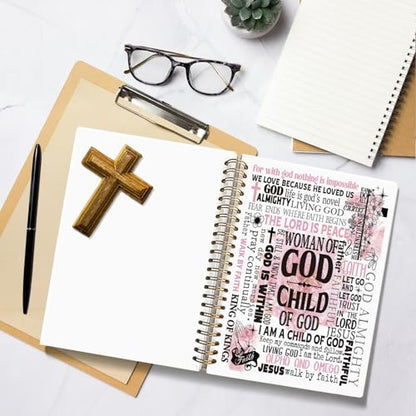 for with god nothing is impossible
WE LOVE BECAUSE HE LOVED US
GOD life is god's novel
ALMIGHTY LIVING GOD
FEAR ENDS WHERE FAITH BEGINS
THE LORD IS PEACE
WOMAN OF
GOD
CHILD
OF GOD
I AM A CHILD OF GOD
Keep my commands and follow
LIVING GOD I am the Lord
ALPHA AND OMEGA
JESUS walk by faith
Faith
pray continually
Father
WALK BY FAITH
KING OF KINGS
GOD IS WITHIN
father
FAITH
LET GO
AND
LET GOD
TRUST
IN THE
LORD
JESUS
FAITHFUL
GOD ALMIGHTY